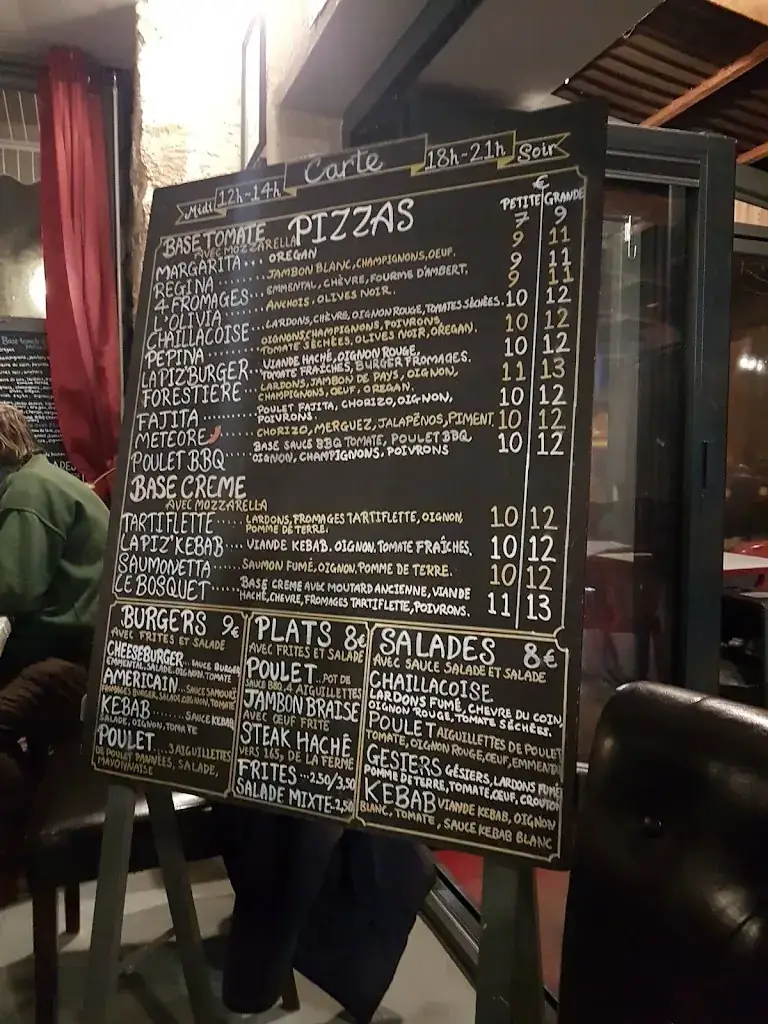 Midi 12h-14h Carte 18h-21h Soir
€
PETITE GRANDE
BASE TOMATE PIZZAS 7 9
AVEC MOZZARELLA
MARGARITA... OREGAN 9 11
REGINA........ JAMBON BLANC, CHAMPIGNONS, OEUF. 9 11
4 FROMAGES... EMMENTAL, CHÈVRE, FOURME D'AMBERT. 9 11
L'OLIVIA....... ANCHOIS, OLIVES NOIR. 10 12
CHAILLACOISE... LARDONS, CHÈVRE, OIGNON ROUGE, TOMATES SÉCHÉES. 10 12
PEPINA........ OIGNONS, CHAMPIGNONS, POIVRONS,
TOMATE SÉCHÉES, OLIVES NOIR, OREGAN. 10 12
LA PIZ'BURGER.. VIANDE HACHÉ, OIGNON ROUGE,
TOMATE FRAICHES, BURGER FROMAGES. 11 13
FORESTIERE... LARDONS, JAMBON DE PAYS, OIGNON,
CHAMPIGNONS, OEUF, OREGAN. 10 12
FAJITA......... POULET FAJITA, CHORIZO, OIGNON,
POIVRONS.
METEORE...... CHORIZO, MERGUEZ, JALAPEÑOS, PIMENT. 10 12
POULET BBQ BASE SAUCE BBQ TOMATE, POULET BBQ 10 12
OIGNON, CHAMPIGNONS, POIVRONS
BASE CREME
AVEC MOZZARELLA
TARTIFLETTE..... LARDONS, FROMAGES TARTIFLETTE, OIGNON, 10 12
POMME DE TERRE.
LA PIZ'KEBAB... VIANDE KEBAB, OIGNON, TOMATE FRAÎCHES. 10 12
SAUMONETTA... SAUMON FUMÉ, OIGNON, POMME DE TERRE. 10 12
LE BOSQUET..... BASE CREME AVEC MOUTARD ANCIENNE, VIANDE 11 13
HACHÉ, CHEVRE, FROMAGES TARTIFLETTE, POIVRONS.
BURGERS 9€
AVEC FRITES ET SALADE
CHEESEBURGER... SAUCE BURGER
EMMENTAL, SALADE, OIGNON, TOMATE
AMERICAIN... SAUCE SAMOURÉ
FROMAGES BURGER, SALADE, OIGNON, TOMATE
KEBAB......SAUCE KEBAB
SALADE, OIGNON, TOMATE
POULET...3 AIGUILLETTES
DE POULET PANNÉES, SALADE,
MAYONNAISE
PLATS 8€
AVEC FRITES ET SALADE
POULET...POT DE
SAUCE BBQ, 4 AIGUILLETTES
JAMBON BRAISE
AVEC ŒUF FRITE
STEAK HACHÉ
VERS 165, DE LA FERME
FRITES...2,50/3,50
SALADE MIXTE-2,50
SALADES 8€
AVEC SAUCE SALADE ET SALADE
CHAILLACOISE
LARDONS FUMÉ, CHEVRE DU COIN,
OIGNON ROUGE, TOMATE SÉCHÉES.
POULET AIGUILLETTES DE POULET
TOMATE, OIGNON ROUGE, ŒUF, EMMENTAL
GESIERS GÉSIERS, LARDONS FUMÉ
POMME DE TERRE, TOMATE, ŒUF, CROUTON
KEBAB VIANDE KEBAB, OIGNON
BLANC, TOMATE, SAUCE KEBAB BLANC